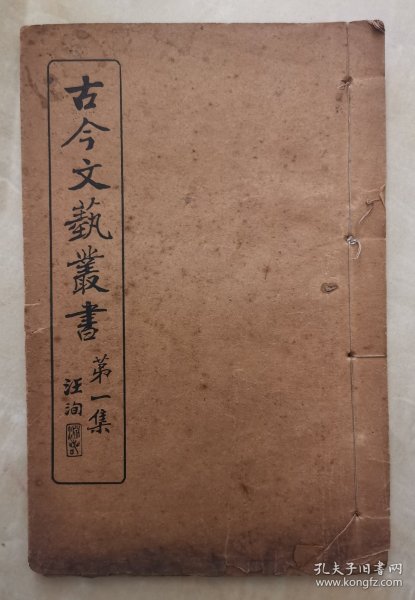 古今文藝叢書
第一集
汪洵
孔夫子旧书网
www.kongfz.com